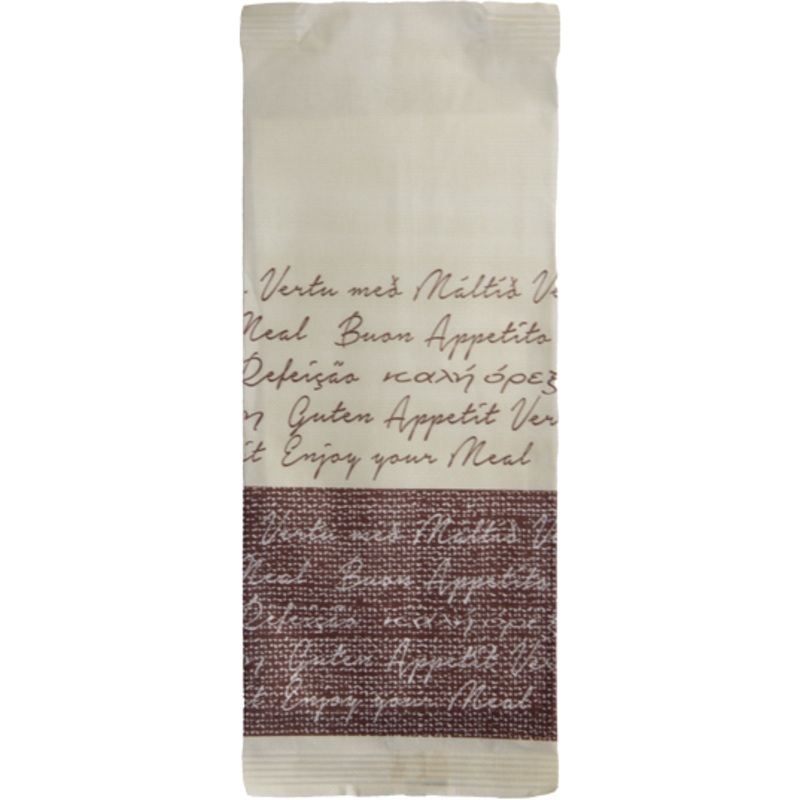 Vertu með Máltíð Ve
Meal Buon Appetito
Refeição καλή όρεξ
n Guten Appetit Ver
it Enjoy your Meal
Vertu með Máltíð Ve
Meal Buon Appetito
Refeição καλή όρεξ
n Guten Appetit Ver
it Enjoy your Meal